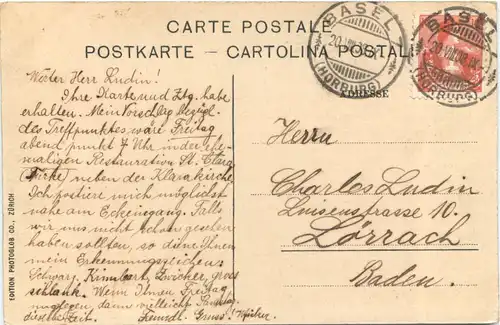 CARTE POSTALE
POSTKARTE - CARTOLINA POSTALE
ADRESSE
BASEL
(HORBURG)
BASEL
(HORBURG)
Werter Herr Ludin!
Ihre Karte und Ztg. habe
erhalten. Mein Vorschlag bezügl.
des Treffpunktes wäre Freitag
abend punkt 7 Uhr in der ehe-
maligen Restauration St. Clara
(Türke) neben der Klarakirche
Ich postiere mich möglichst
nahe am Eckeingang. Falls
wir uns nicht schon gesehen
haben sollten, so diene Ihnen
mein Erkennungszeichen:
Schwarz. Kinnbart, Zwicker, gross
schlank. Wenn Ihnen Freitag
dann vielleicht Samstag
dieselbe Zeit. Freundl. Gruss!
Herrn
Charles Ludin
Luisenstrasse 10.
Lörrach
Baden.
EDITION PHOTOGLOB CO., ZÜRICH